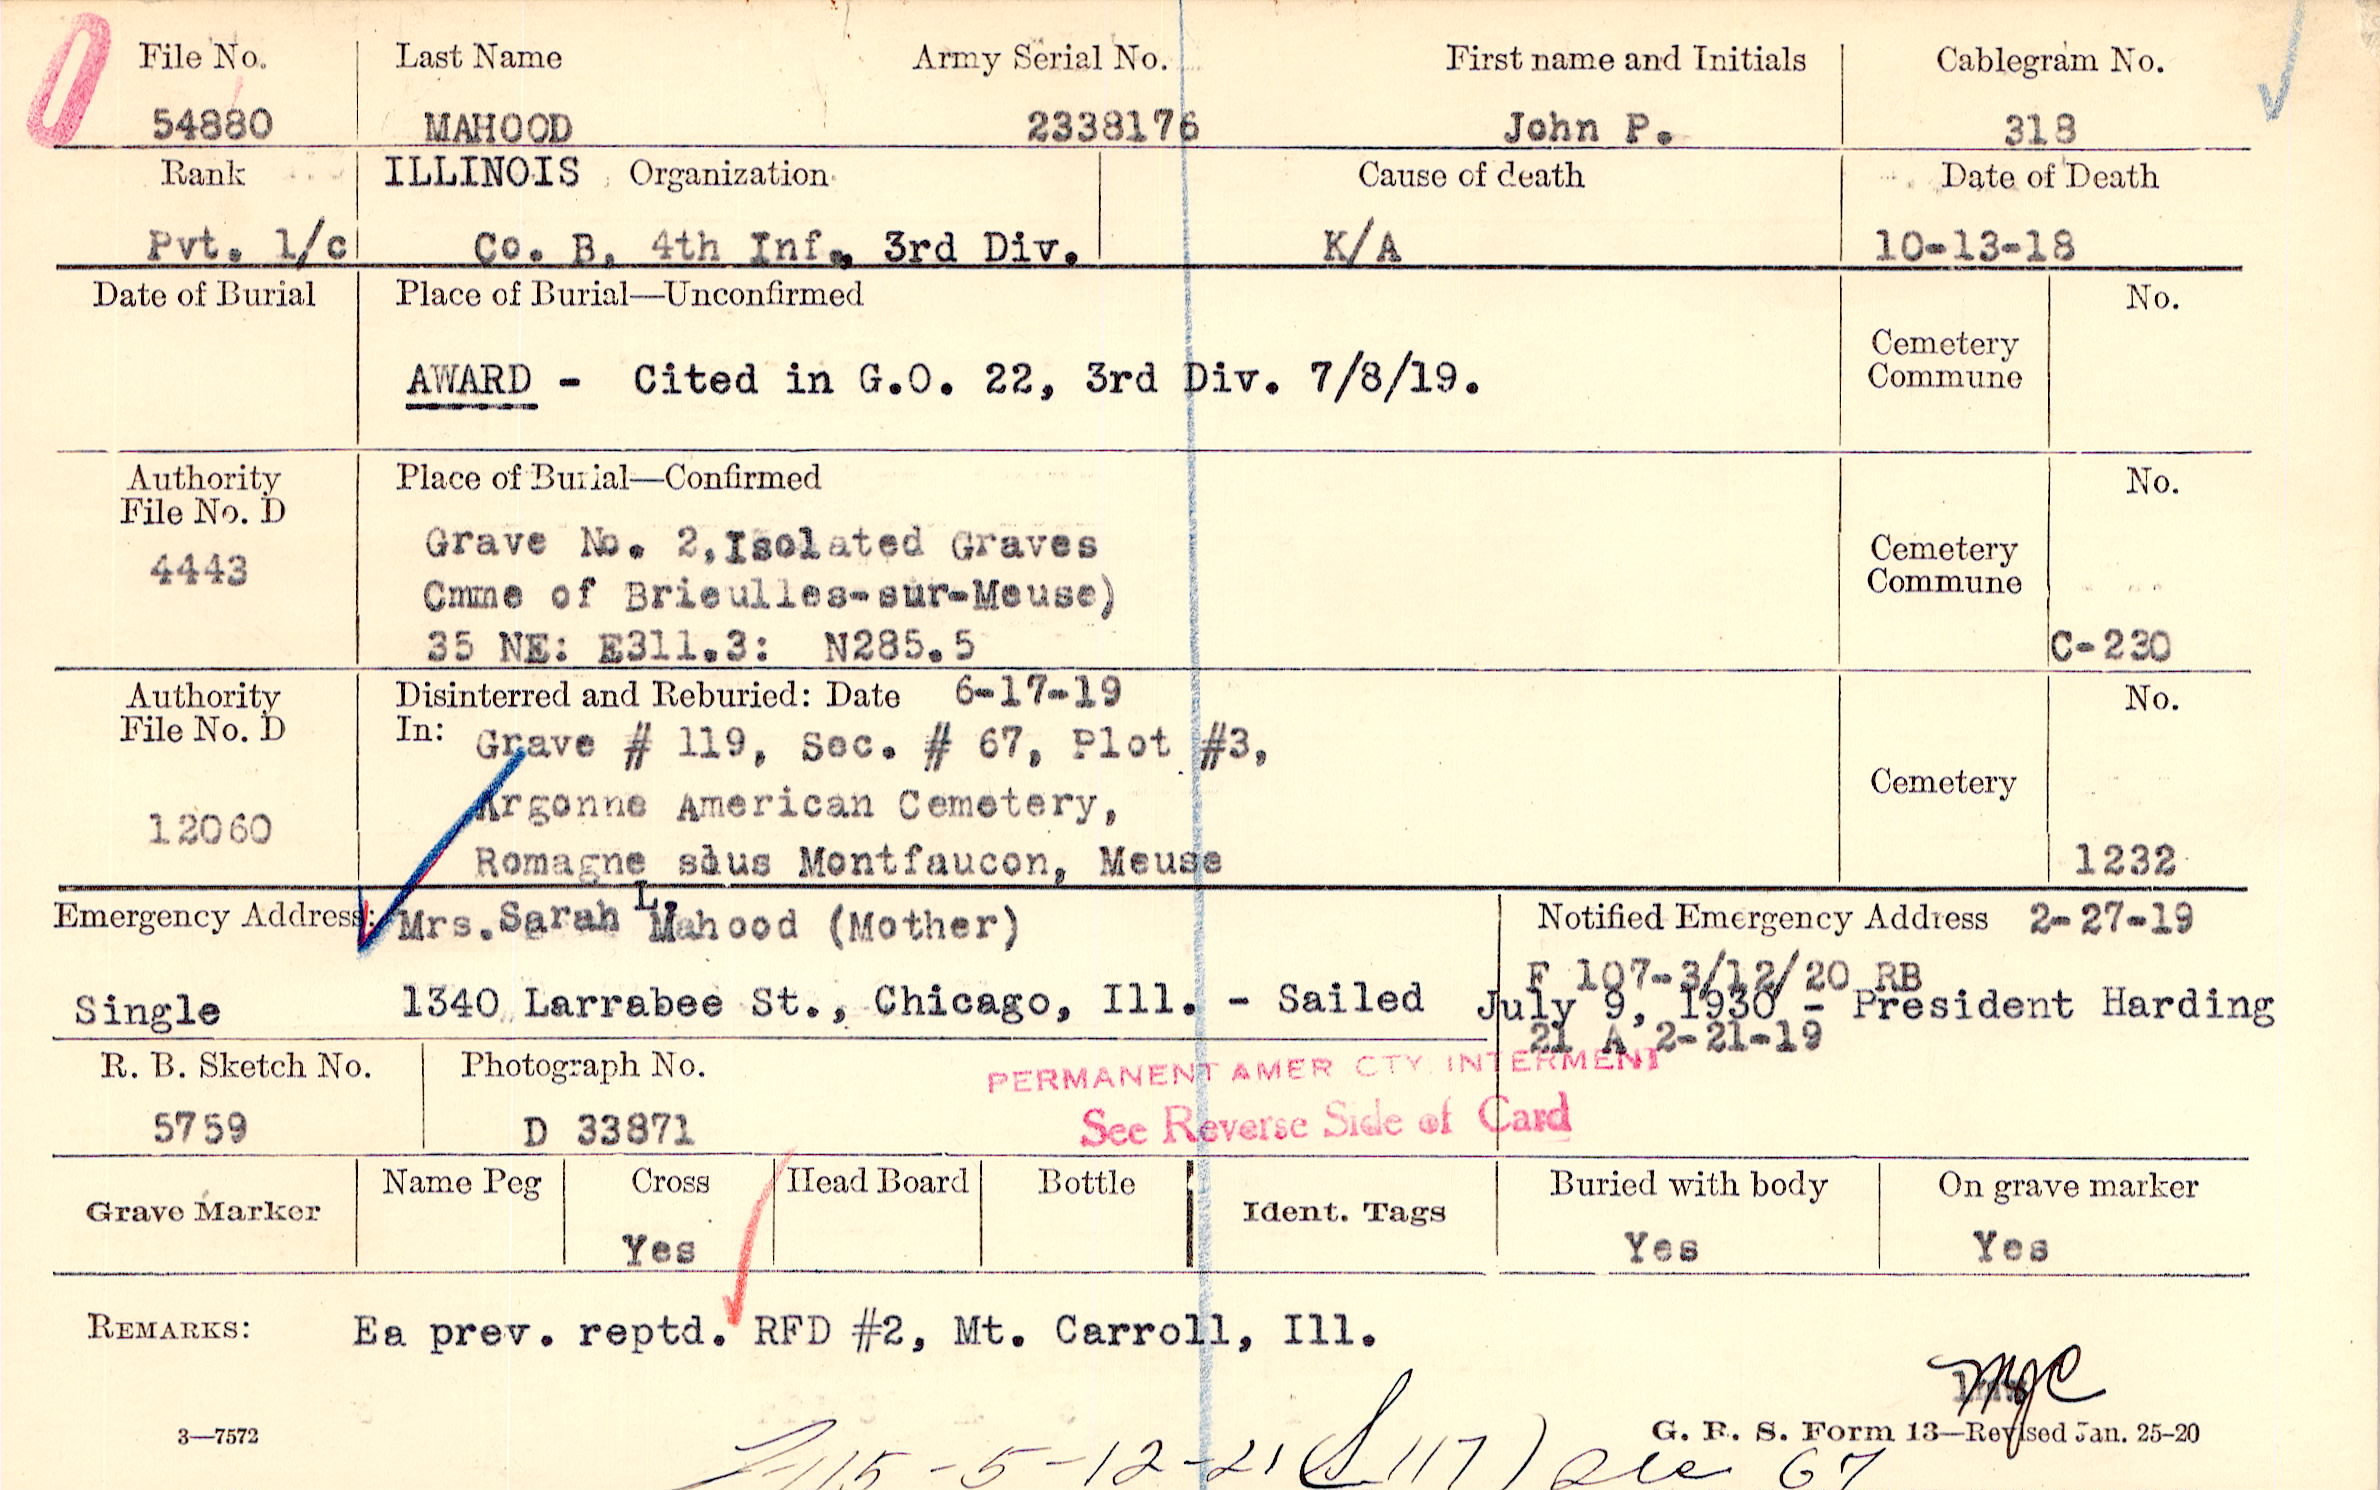 File No. Last Name Army Serial No. First name and Initials Cablegram No.
54880 MAHOOD 2338176 John P. 318
Rank ILLINOIS Organization Cause of death Date of Death
Pvt. 1/c Co. B, 4th Inf., 3rd Div. K/A 10-13-18
Date of Burial Place of Burial—Unconfirmed No.
Cemetery
Commune
AWARD - Cited in G.O. 22, 3rd Div. 7/8/19.
Authority Place of Burial—Confirmed No.
File No. D
4443
Grave No. 2, Isolated Graves
Cmme of Brieulles-sur-Meuse)
35 NE: E311.3: N285.5
Cemetery
Commune
C-230
Authority Disinterred and Reburied: Date 6-17-19 No.
File No. D In: Grave # 119, Sec. # 67, Plot #3,
Argonne American Cemetery, Cemetery
12060
Romagne sous Montfaucon, Meuse 1232
Emergency Address: Mrs. Sarah L. Mahood (Mother) Notified Emergency Address 2-27-19
F 107-3/12/20 RB
Single 1340 Larrabee St., Chicago, Ill. - Sailed July 9, 1930 - President Harding
21 A 2-21-19
R. B. Sketch No. Photograph No. PERMANENT AMER CTY. INTERMENT
5759 D 33871 See Reverse Side of Card
Grave Marker Name Peg Cross Head Board Bottle Ident. Tags Buried with body On grave marker
Yes Yes Yes
REMARKS: Ea prev. reptd. RFD #2, Mt. Carroll, Ill.
3—7572 G. R. S. Form 13—Revised Jan. 25-20
115-5-12-21 (S.117) Dec 67